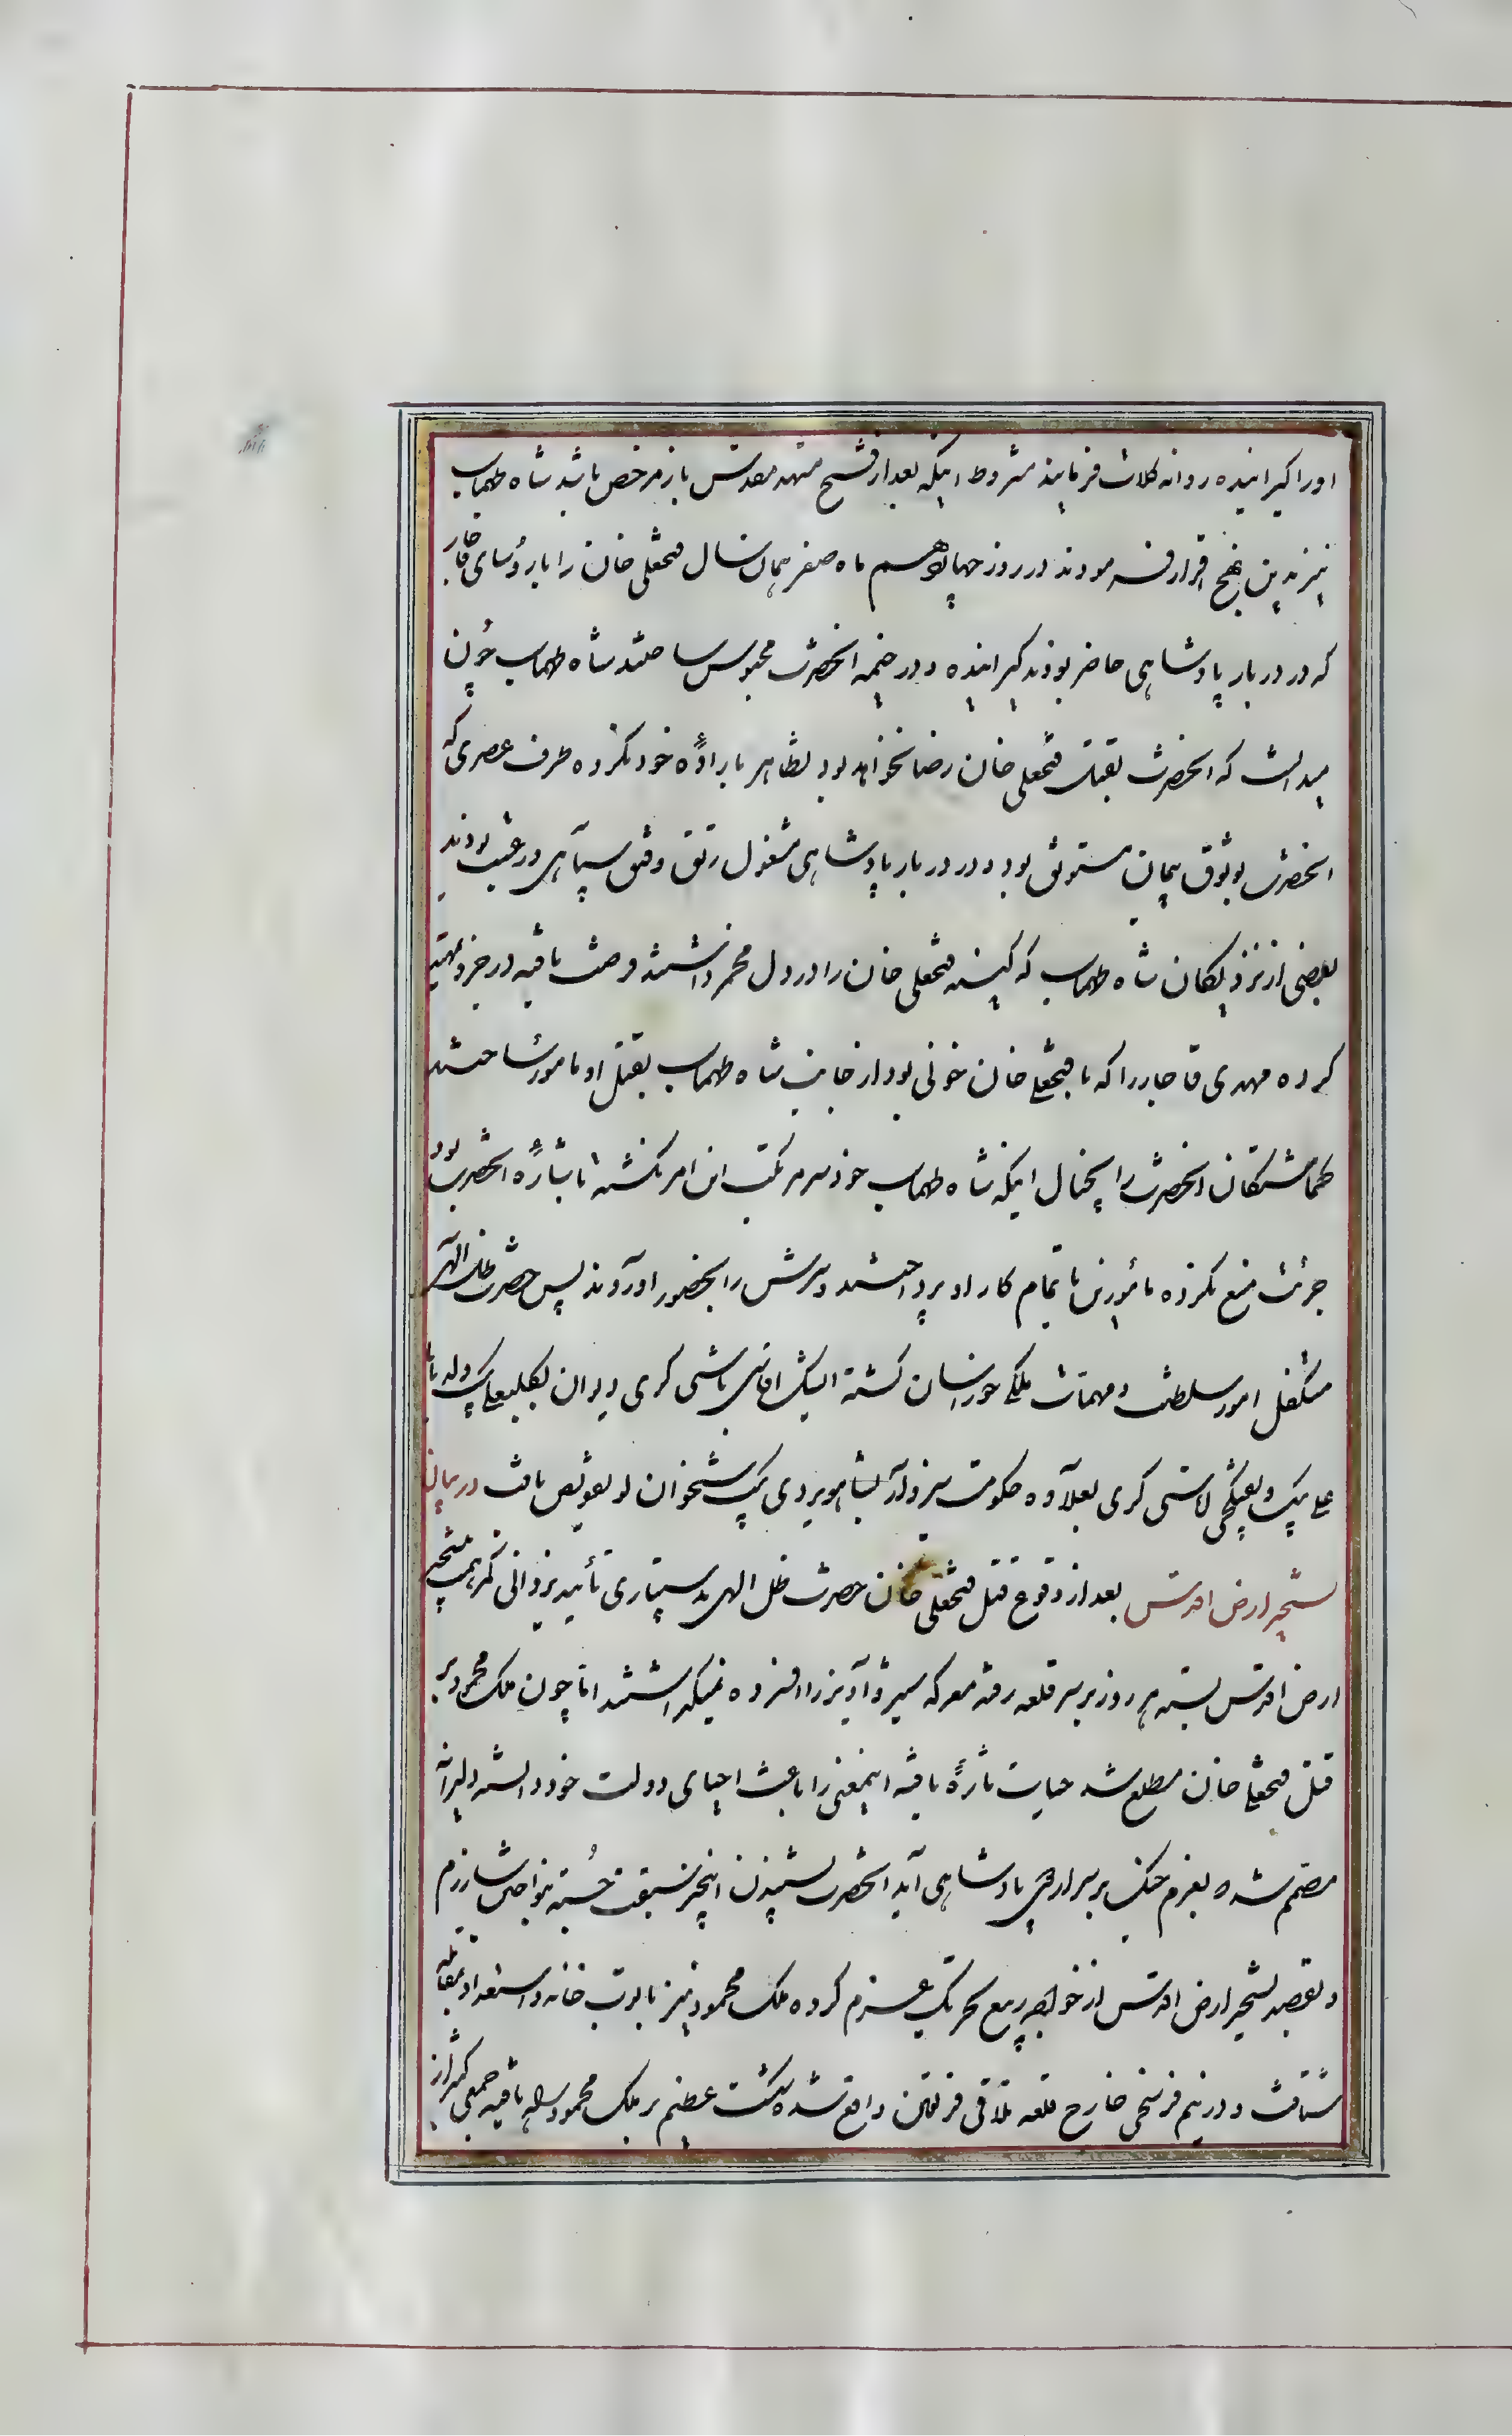 او را گیرانیده روانه کلات فرمایند مشروط اینکه بعد از فتح مشهد مقدس باز مرخص باشد شاه طهماسب
نیز بدین نهج قرار فرموده در روز چهاردهم ماه صفر همان سال فتحعلی خان را با رؤسای قاجار
که در دربار پادشاهی حاضر بودند گیرانیده و در خیمه انحضرت محبوس ساختند شاه طهماسب چون
میدانست که انحضرت بقتل فتحعلی خان رضا نخواهد بود بظاهر با براده خود نکرده طرف عصری که
انحضرت بوثوق پیمان مستوثق بود و در دربار پادشاهی مشغول رتق و فتق سپاهی و رعیت بودند
بعضی از نزدیکان شاه طهماسب که کینه فتحعلی خان را در دل مخمر داشتند فرصت یافته در خبر
کرده مهدی قاجار را که با فتحعلی خان خونی بود از جانب شاه طهماسب بقتل او مامور ساختند
گماشتگان انحضرت را بخیال اینکه شاه طهماسب خودسر مرتکب این امر نگشته باشاره انحضرت بود
جرئت منع نکرده مأمورین باتمام کار او پرداختند و سرش را بحضور اوردند پس حضرت ظل الهی
متکفل امور سلطنت و مهمات ملکی خراسان گشته ایشک اقاسی باشی کری دیوان بکلبعلی بیک ولد بابا
علی بیک و باشی کری بعلاوه حکومت سبزوار بشاهویردی بیک شیخوان لو تفویض یافت در بیان
تسخیر ارض اقدس بعد از وقوع قتل فتحعلی خان حضرت ظل الهی بدستیاری تأیید یزدانی کمر همت بتسخیر
ارض اقدس بسته هر روز بر سر قلعه رفته معرکه ستیز و آویز را افسرده نمیگذاشتند اما چون ملک محمود بر
قتل فتحعلی خان مطلع شد حیات تازه یافته اینمعنی را باعث احیای دولت خود دانسته دلیرانه
مصمم شده بعزم جنک بر سر اردوی پادشاهی آید انحضرت بشنیدن اینخبر سبقت جسته بنواختن ساز رزم
و بقصد تسخیر ارض اقدس از خواجه ربیع تحریک عزم کرده ملک محمود نیز با توپ خانه و استعداد بمقابله
شتافت و در نیم فرسخی خارج قلعه تلاقی فریقین واقع شده شکست عظیم بر ملک محمود راه یافته جمعی کثیر از